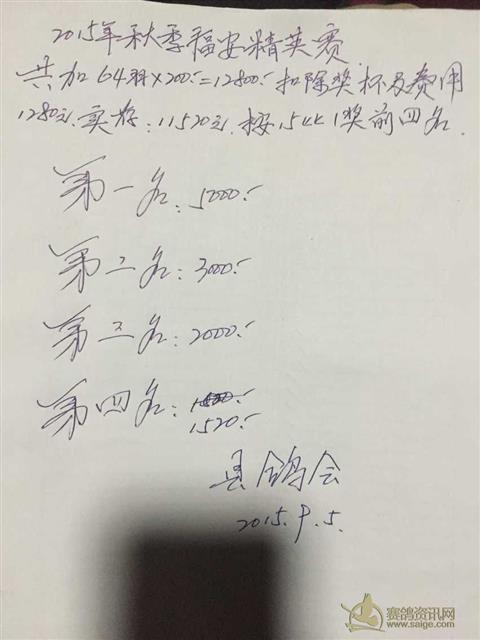 2015年秋季福安精英赛
共加64羽×200.-=12800.- 扣除奖杯及费用
1280元.实存:11520元.按15以1奖前四名.
第一名:5000.-
第二名:3000.-
第三名:2000.-
第四名:
1520.-
县鸽会
2015.9.5.
赛鸽资讯网
www.saige.com